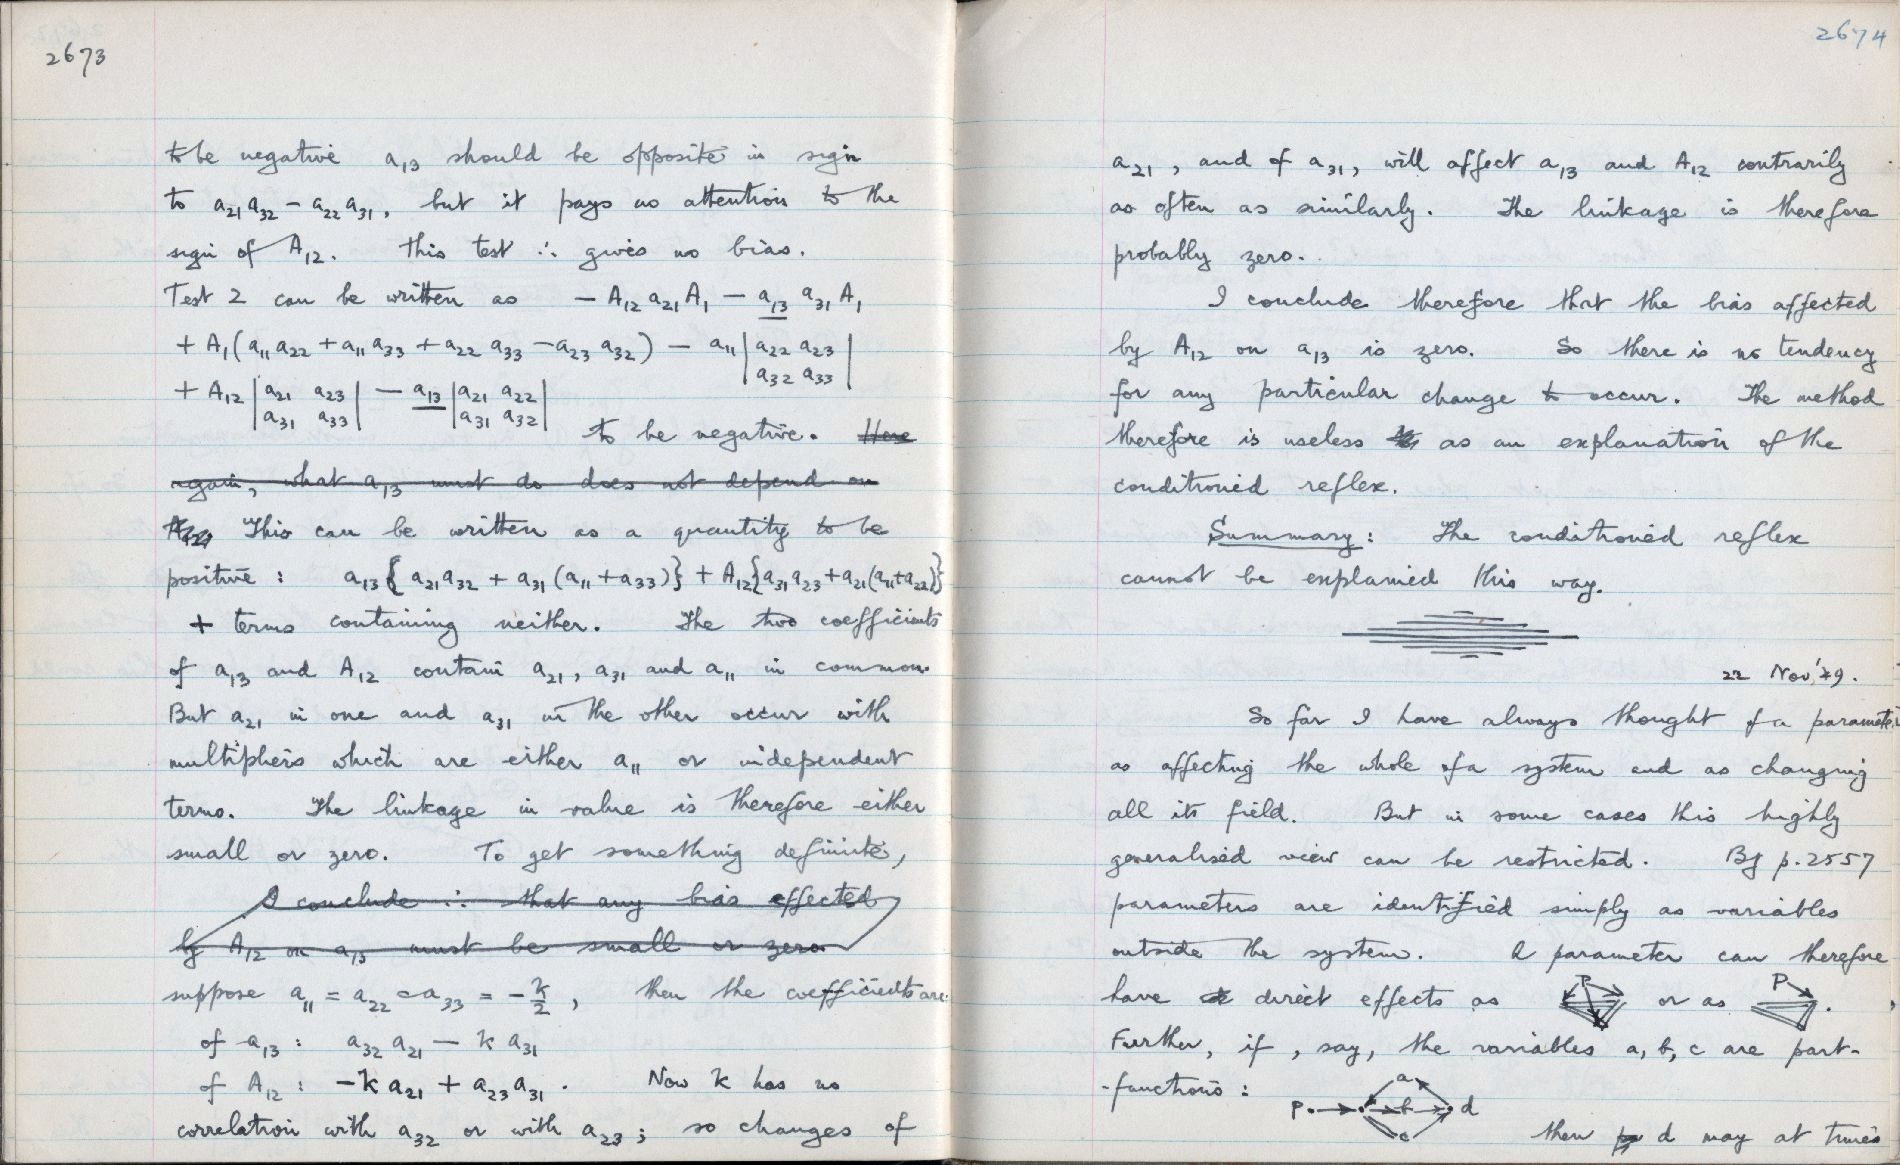 2673
to be negative a13 should be opposite in sign
to a21 a32 − a22 a31, but it pays no attention to the
sign of A12. This test ∴ gives no bias.
Test 2 can be written as − A12 a21 A1 − a13 a31 A1
+ A1(a11 a22 + a11 a33 + a22 a33 − a23 a32) − a11 | a22 a23 |
| a32 a33 |
+ A12 | a21 a23 | − a13 | a21 a22 |
| a31 a33 | | a31 a32 |
to be negative. Here
again, what a13 must do does not depend on
A12, This can be written as a quantity to be
positive : a13{ a21 a32 + a31 (a11 + a33)} + A12{a31 a23 + a21(a11 + a22)}
+ terms containing neither. The two coefficients
of a13 and A12 contain a21, a31 and a11 in common.
But a21 in one and a31 in the other occur with
multipliers which are either a11 or independent
terms. The linkage in value is therefore either
small or zero. To get something definite,
I conclude ∴ that any bias effected
by A12 on a13 must be small or zero.
suppose a11 = a22 = a33 = − k/2 , then the coefficients are:
of a13 : a32 a21 − k a31
of A12 : −k a21 + a23 a31 . Now k has no
correlation with a32 or with a23 ; so changes of
2674
a21 , and of a31, will affect a13 and A12 contrarily
as often as similarly. The linkage is therefore
probably zero.
I conclude therefore that the bias affected
by A12 on a13 is zero. So there is no tendency
for any particular change to occur. The method
therefore is useless as an explanation of the
conditioned reflex.
Summary : The conditioned reflex
cannot be explained this way.
22 Nov '49.
So far I have always thought of a parameter
as affecting the whole of a system and as changing
all its field. But in some cases this highly
generalised view can be restricted. By p. 2557
parameters are identified simply as variables
outside the system. A parameter can therefore
have direct effects as P or as P .
Further, if , say, the variables a, b, c are part-
-functions :
a
P. b d
c
then d may at times